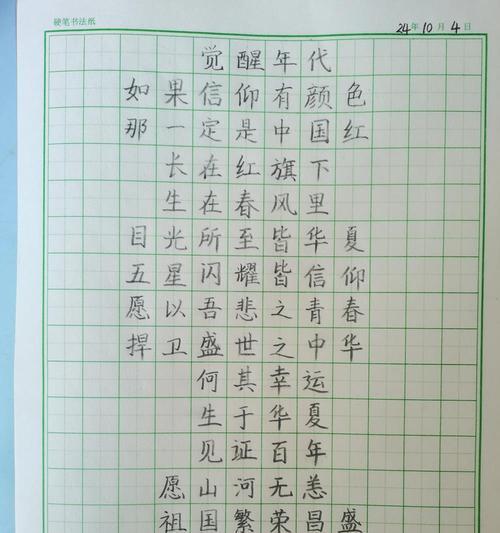 硬笔书法纸
24年10月4日
觉醒年代
如果信仰有颜色
那一定是中国红
长在红旗下
生在春风里
目光所至皆华夏
五星闪耀皆信仰
愿以吾悲之青春
捍卫盛世之中华
何其幸运
生于华夏
见证百年
愿山河无恙
祖国繁荣昌盛